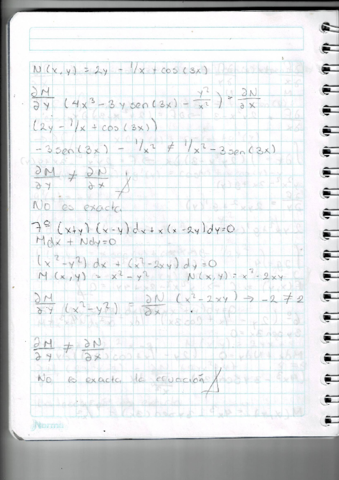 N(x,y) = 2y - 1/x + cos(3x)
∂M/∂y (4x³ - 3y sen(3x) - y²/x²) = ∂N/∂x
(2y - 1/x + cos(3x))
-3sen(3x) - 1/x² ≠ 1/x² - 3sen(3x)
∂M/∂y ≠ ∂N/∂x
No es exacta
7º (x+y)(x-y)dx + x(x-2y)dy=0
Mdx + Ndy=0
(x²-y²)dx + (x²-2xy)dy=0
M(x,y) = x²-y² N(x,y) = x²-2xy
∂M/∂y (x²-y²) = ∂N/∂x (x²-2xy) → -2 ≠ 2
∂M/∂y ≠ ∂N/∂x
No es exacta la ecuación